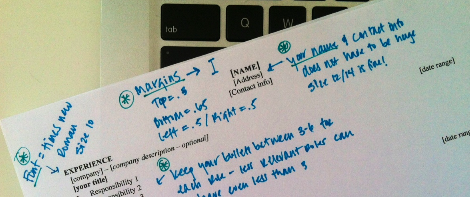 tab
Q
W
* margins → I
Top = .5
Bottom = .65
Left = .5 / Right = .5
[NAME]
[Address]
[Contact info]
* your name & contact info
does not have to be huge
size 12/14 is fine!
[date range]
* Font = times new
roman
size 10
EXPERIENCE
[company] – [company description – optional]
[your title]
Responsibility 1
Responsibility 2
* keep your bullets between 3-6 for
each role – less relevant roles can
have even less than 3
[date range]